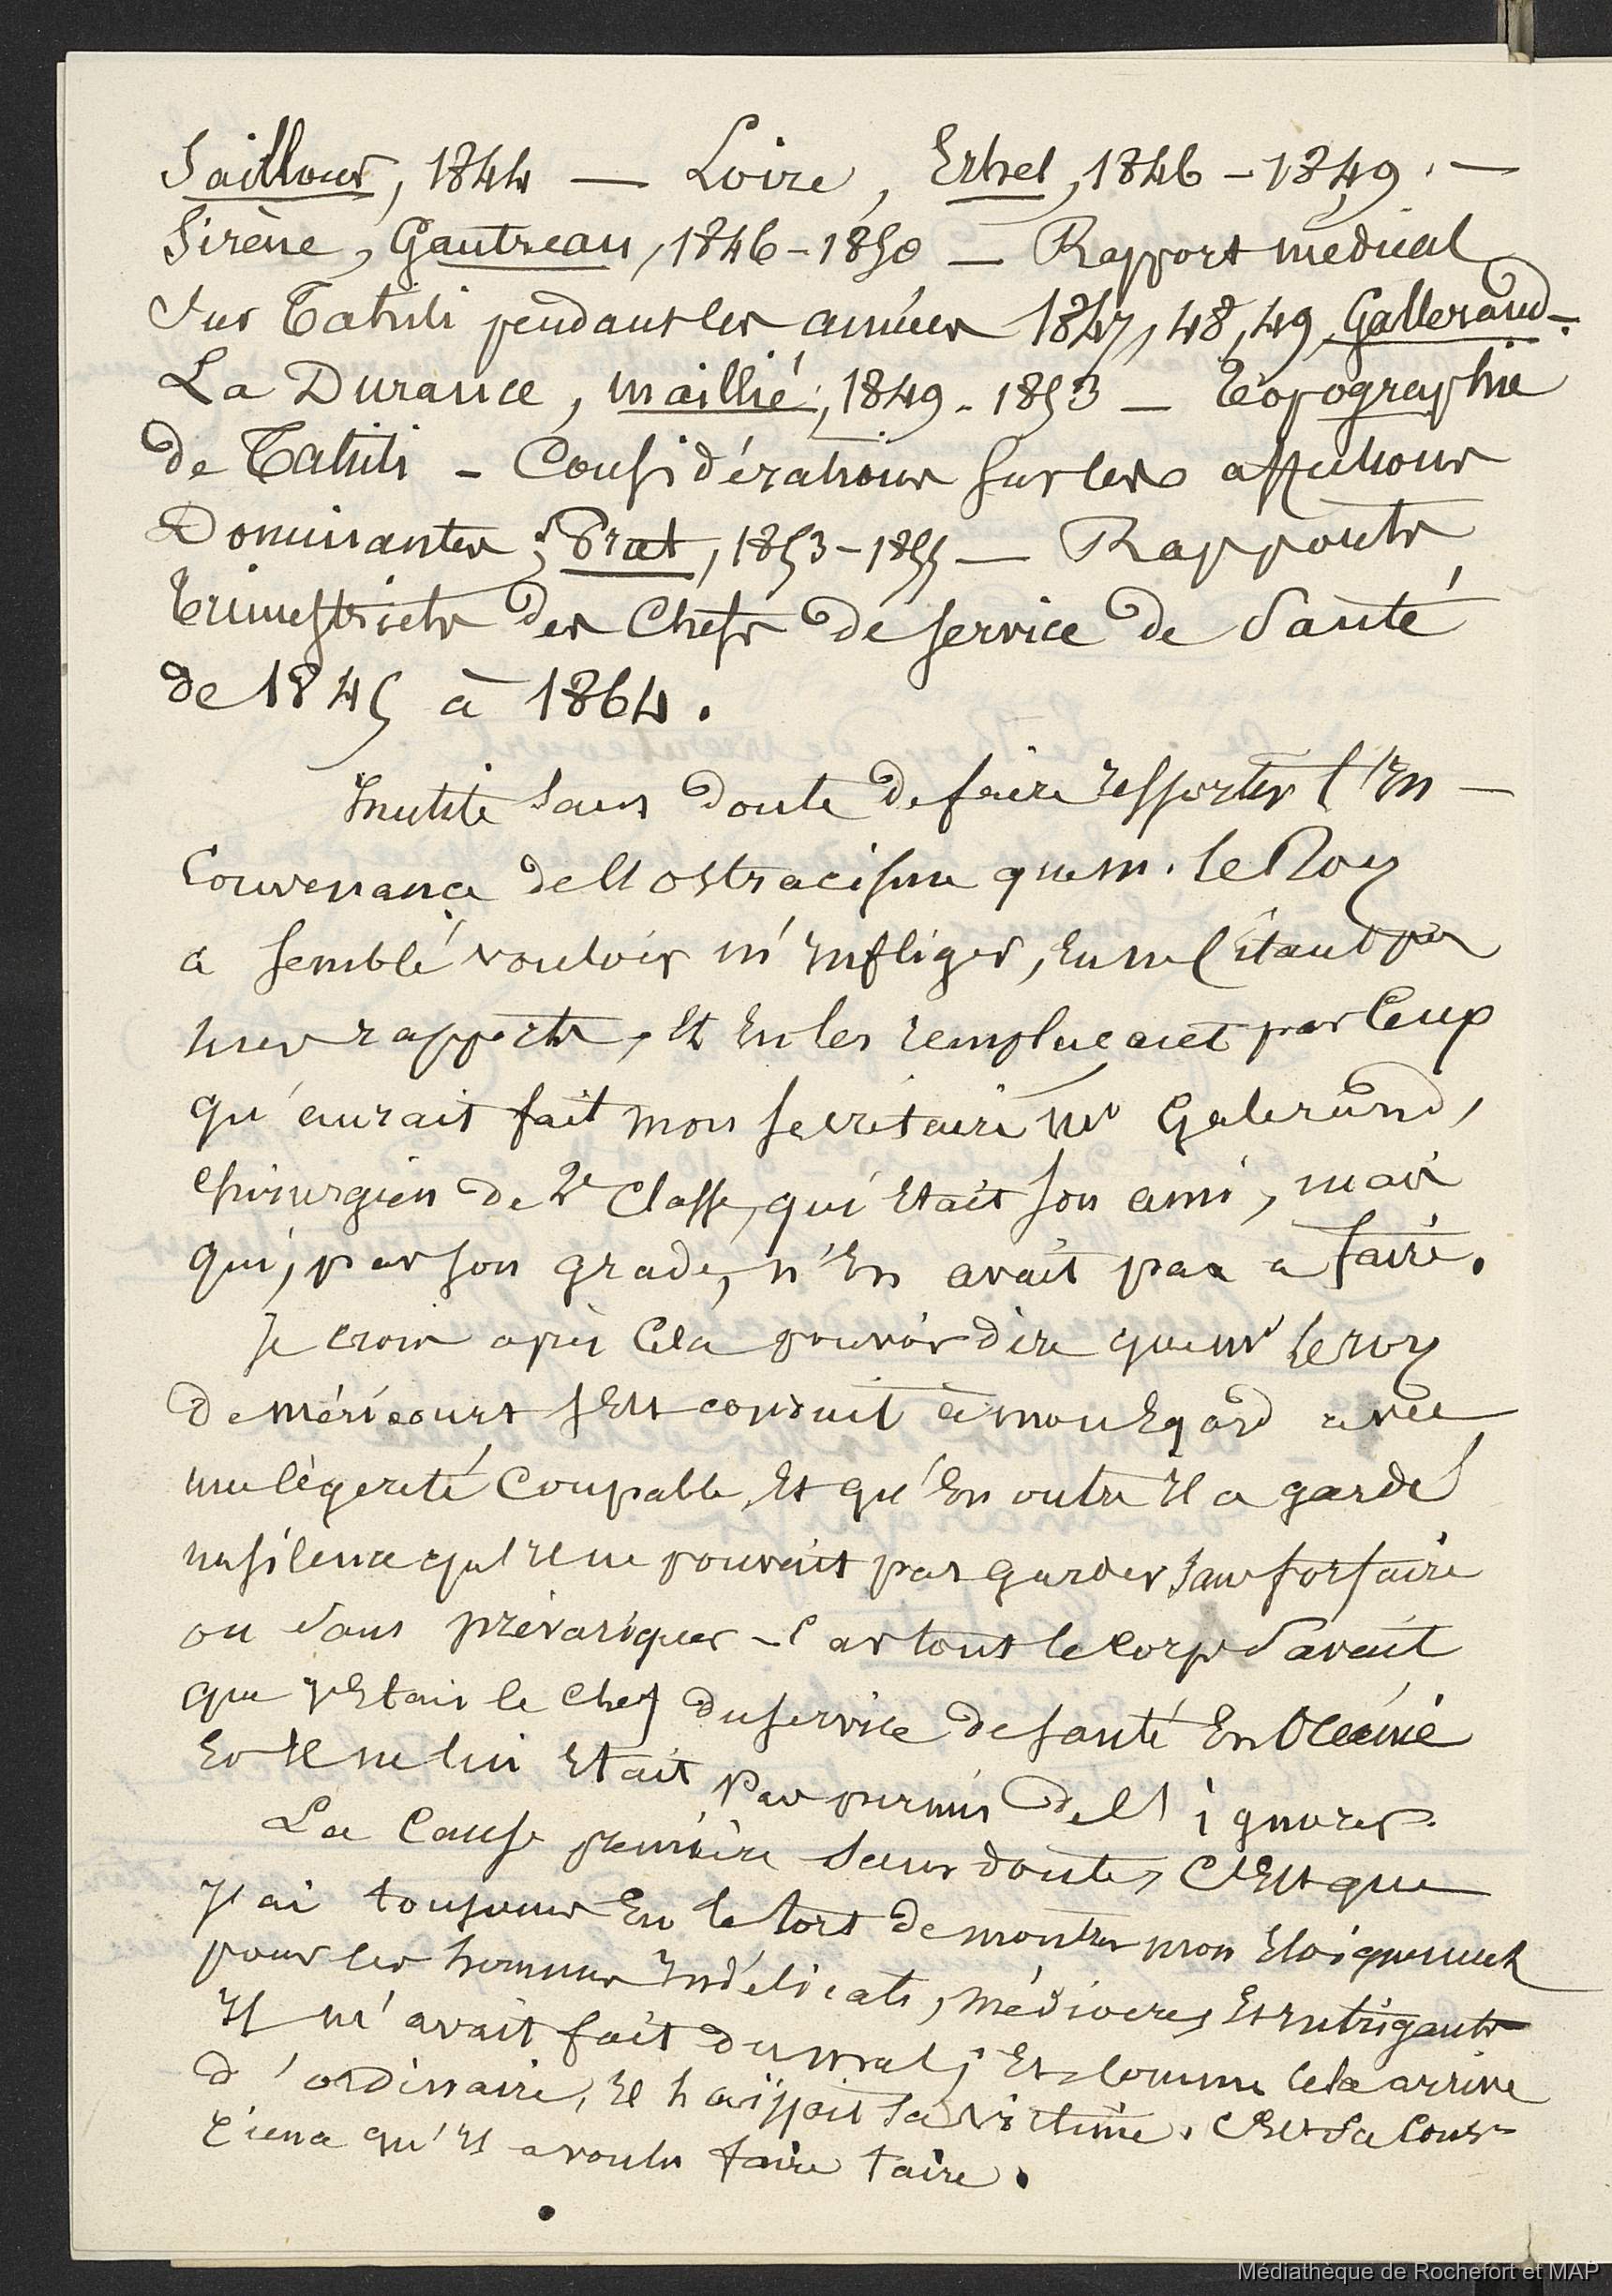 Sailloux, 1844 — Loire, Erhel, 1846 – 1849. —
Sirène, Gautreau, 1846 – 1850 — Rapport médical
sur Tahiti pendant les années 1847, 48, 49, Gallerand —
La Durance, Maillié, 1849 - 1853 — Topographie
de Tahiti – Considérations sur les affections
Dominantes ; Prat, 1853 – 1855 — Rapports
trimestriels des Chefs de service de Santé
de 1845 à 1864.
Inutile sans doute de faire ressortir l'in –
Convenance de l'ostracisme que m. le Roy
a semblé vouloir m'infliger, en ne citant pas
mes rapports, et en les remplacant par ceux
qu'aurait fait mon secrétaire mr Galerand,
chirurgien de 2e Classe, qui était son ami, mais
qui, par son grade, n'en avait pas a faire.
Je crois après cela pouvoir dire que mr le roy
de méricourt s'est conduit à mon égard avec
une légereté coupable, et qu'en outre il a gardé
un silence qu'il ne pouvait pas garder sans forfaire
ou sans prévariquer – Car tout le corps savait
que j'étais le chef du service de santé en Océanie
et il ne lui était pas permis de l'ignorer.
La cause première sans doute, c'est que
j'ai toujours eu le tort de montrer mon éloignement
pour les hommes indélicats, médiocres et intrigants
Il m'avait fait du mal ; et, comme cela arrive
d'ordinaire, il haïssait sa victime. C'est sa cons-
cience qu'il a voulu faire taire.
Médiathèque de Rochefort et MAP